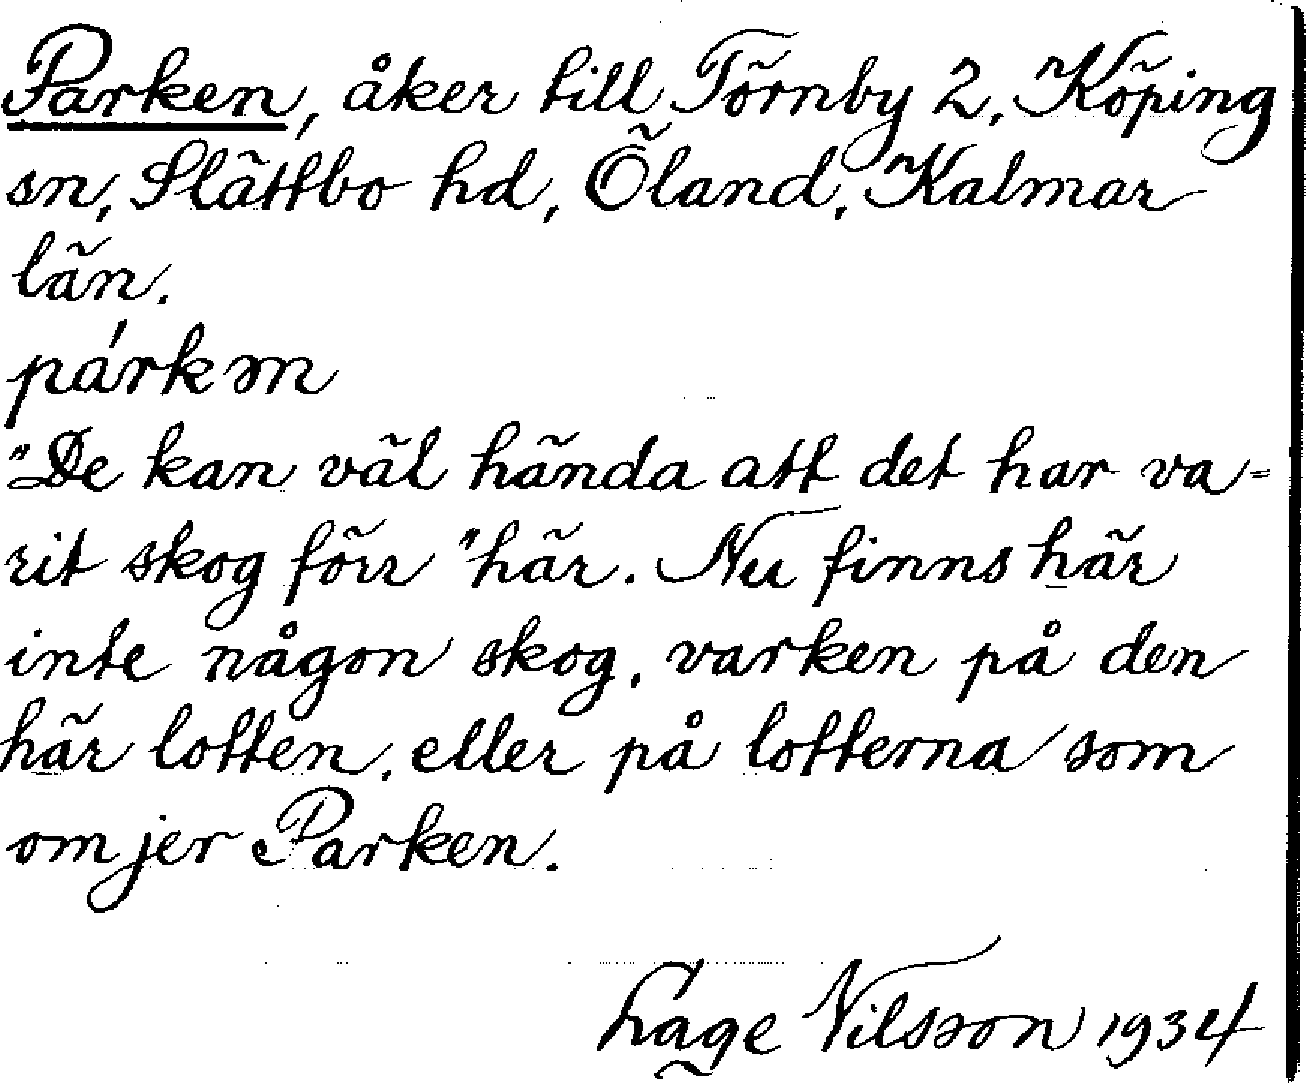 Parken, åker till Törnby 2, Köping
sn, Slättbo hd, Öland, Kalmar
län.
párkən
"De kan väl hända att det har va-
rit skog förr" här. Nu finns här
inte någon skog, varken på den
här lotten, eller på lotterna som
omger Parken.
Lage Nilsson 1934